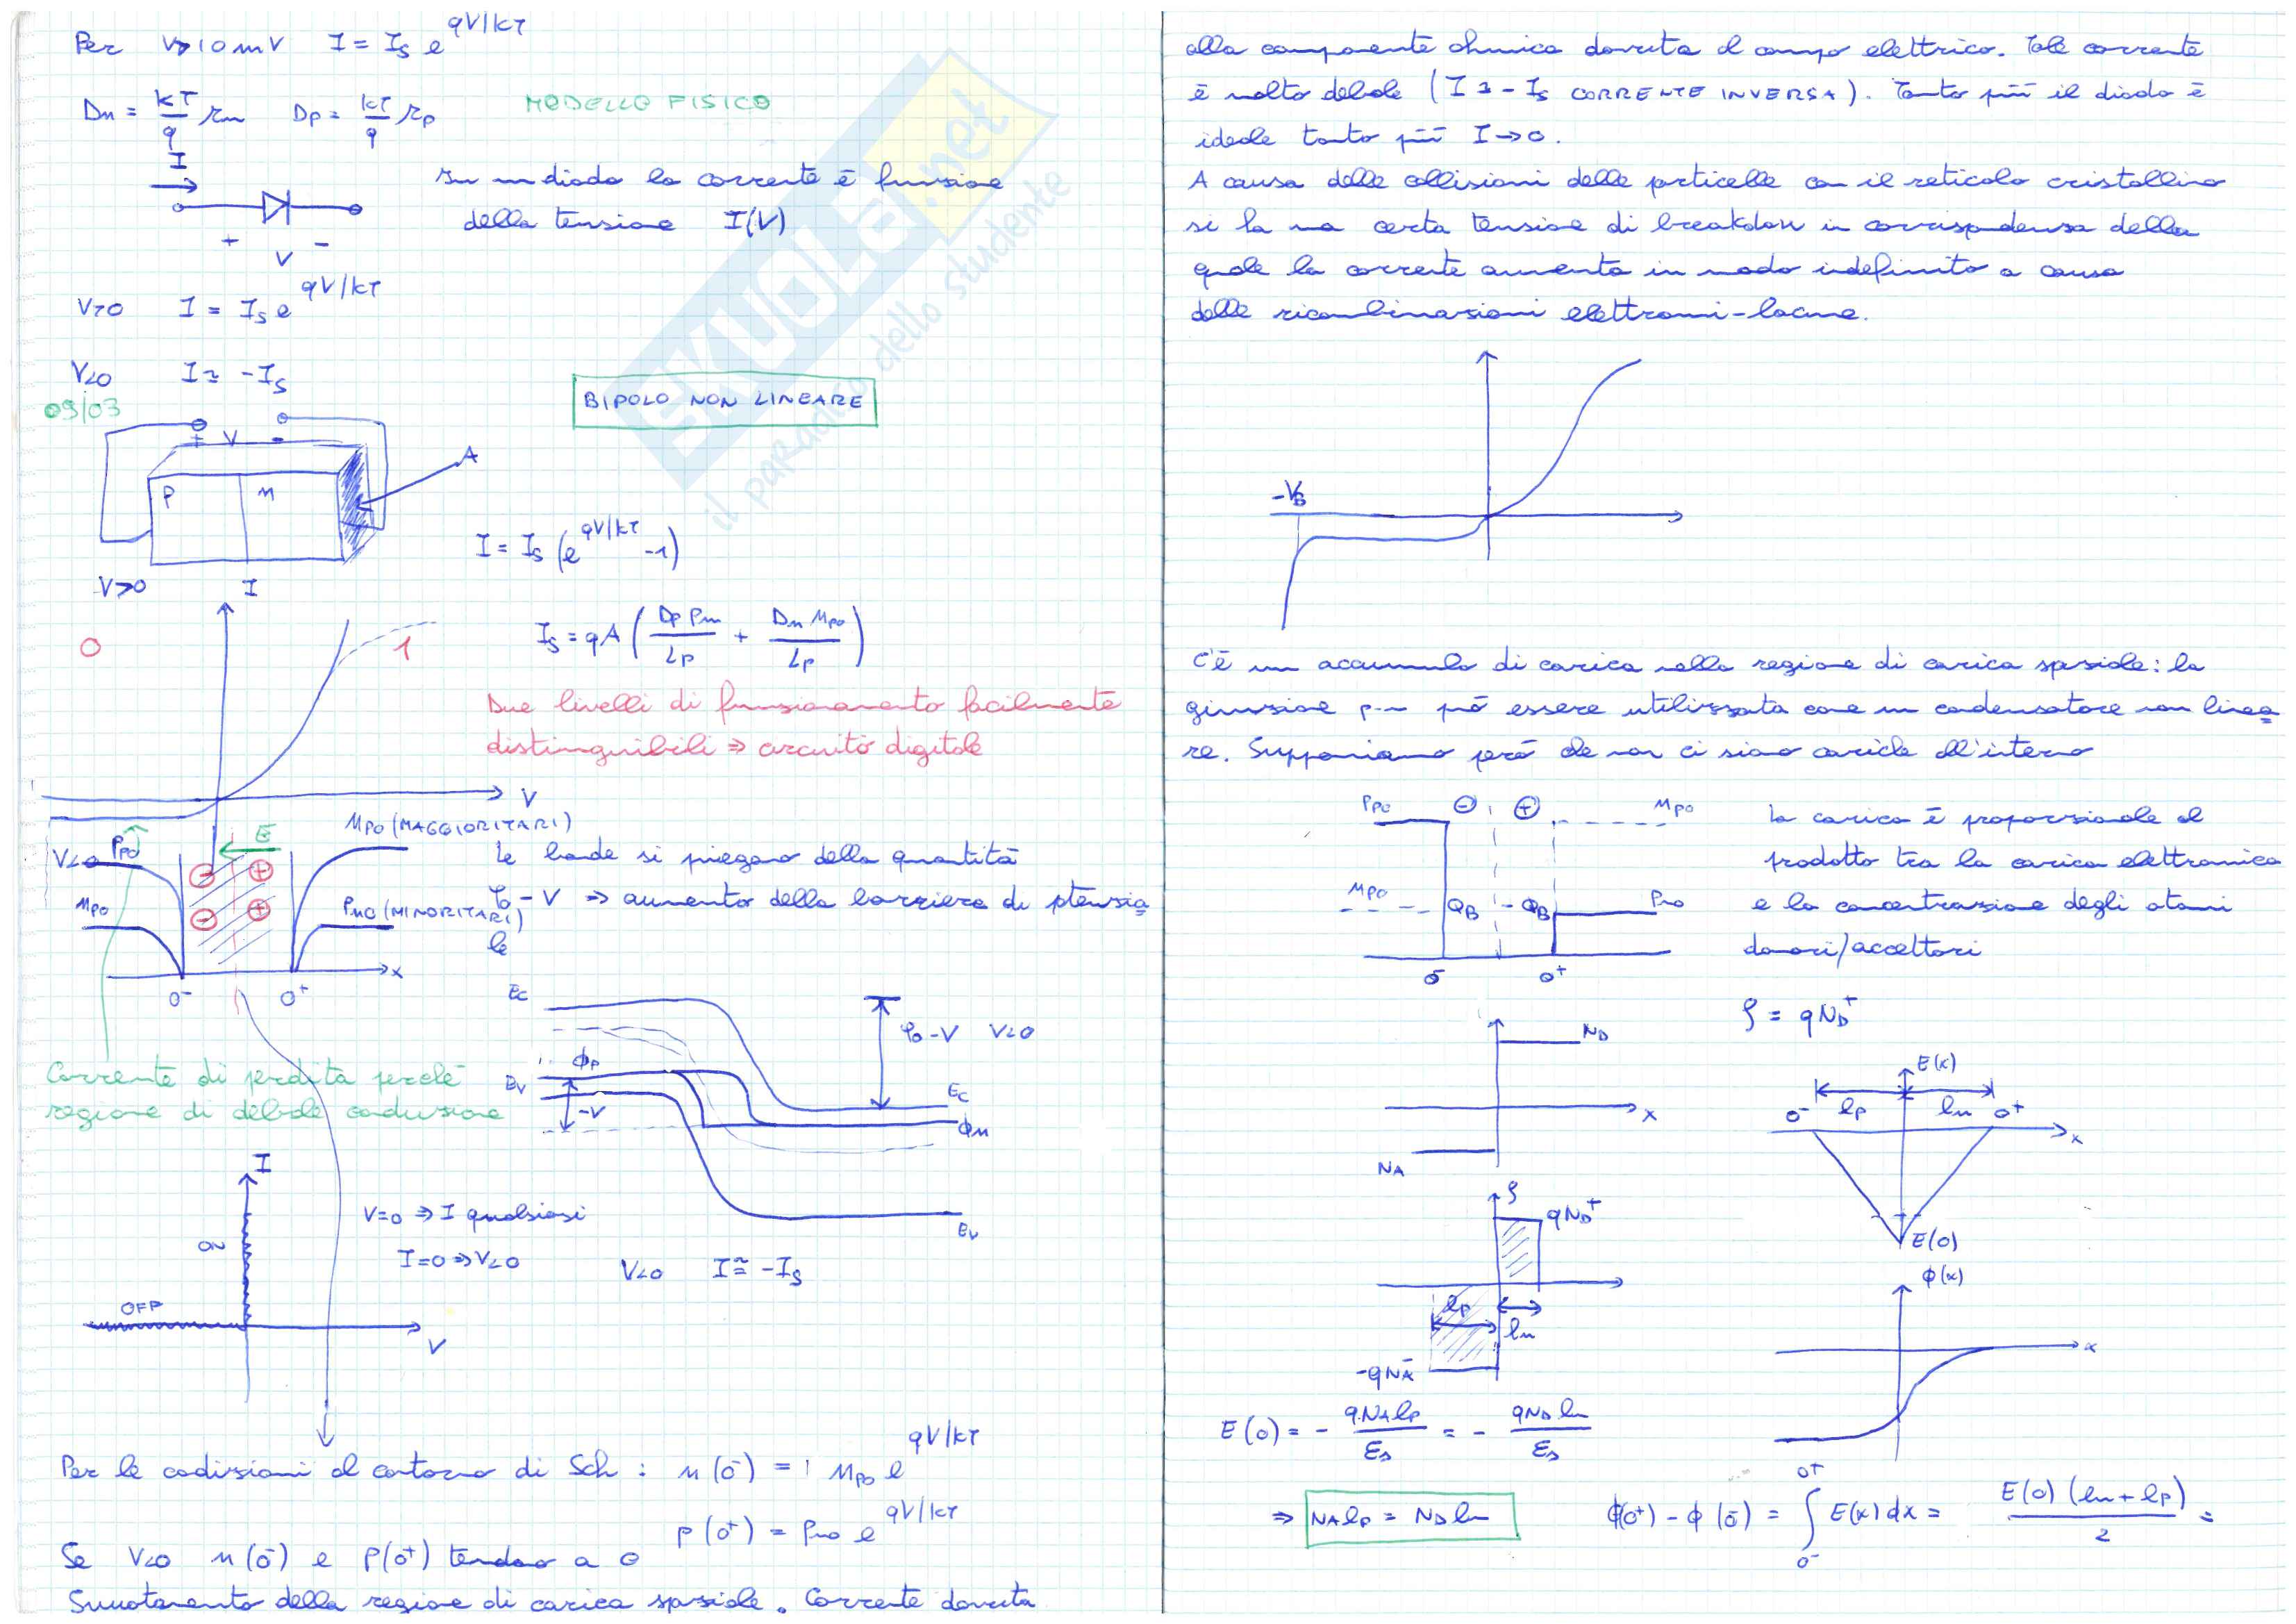 Per V>10mV I = Is e^qV/kT
Dn = kT/q μn Dp = kT/q μp MODELLO FISICO
I
In un diodo la corrente è funzione
della tensione I(V)
+ V -
V>0 I = Is e^qV/kT
V<0 I ≃ -Is
09/03
BIPOLO NON LINEARE
+ V -
A
P n
I = Is (e^qV/kT -1)
V>0 I
Is = qA (Dp Pn/Lp + Dn npo/Lp)
0 1
Due livelli di funzionamento facilmente
distinguibili ⇒ circuito digitale
V
npo (MAGGIORITARI)
V<0 Ppo E
Le bande si piegano della quantità
φo - V ⇒ aumento della barriera di potenzia
le
npo
Pno (MINORITARI)
x
0⁻ 0⁺
Ec
φo - V V<0
Corrente di perdita perché
regione di debole conduzione
Ev φp -V Ec φn
Ev
I
V=0 ⇒ I qualsiasi
ON
I=0 ⇒ V<0
V<0 I ≅ -Is
OFF
V
Per le condizioni al contorno di Sch : n(0⁻) = npo e^qV/kT
p(0⁺) = Pno e^qV/kT
Se V<0 n(0⁻) e p(0⁺) tendono a 0
Svuotamento della regione di carica spaziale. Corrente dovuta
alla componente ohmica dovuta al campo elettrico. Tale corrente
è molto debole (I ≃ -Is CORRENTE INVERSA). Tanto più il diodo è
ideale tanto più I→0.
A causa delle collisioni delle particelle con il reticolo cristallino
si ha una certa tensione di breakdown in corrispondenza della
quale la corrente aumenta in modo indefinito a causa
delle ricombinazioni elettroni-lacune.
-VB
C'è un accumulo di carica nella regione di carica spaziale: la
giunzione p-n può essere utilizzata come un condensatore non linea
re. Supponiamo però che non ci siano cariche all'interno
Ppo ⊖ ⊕ npo
La carica è proporzionale al
prodotto tra la carica elettronica
e la concentrazione degli atomi
donori/accettori
npo QB -QB Pno
0⁻ 0⁺
ρ = qND⁺
ND
x
NA
E(x)
0⁻ lp ln 0⁺
x
E(0)
ρ
qND⁺
lp
ln
-qNA⁻
φ(x)
x
E(0) = - qNAlp/εs = - qNDln/εs
⇒ NAlp = NDln
φ(0⁺) - φ(0⁻) = ∫0⁻0⁺ E(x)dx = E(0)(ln+lp)/2 =
SKUOLA.net
il paradiso dello studente